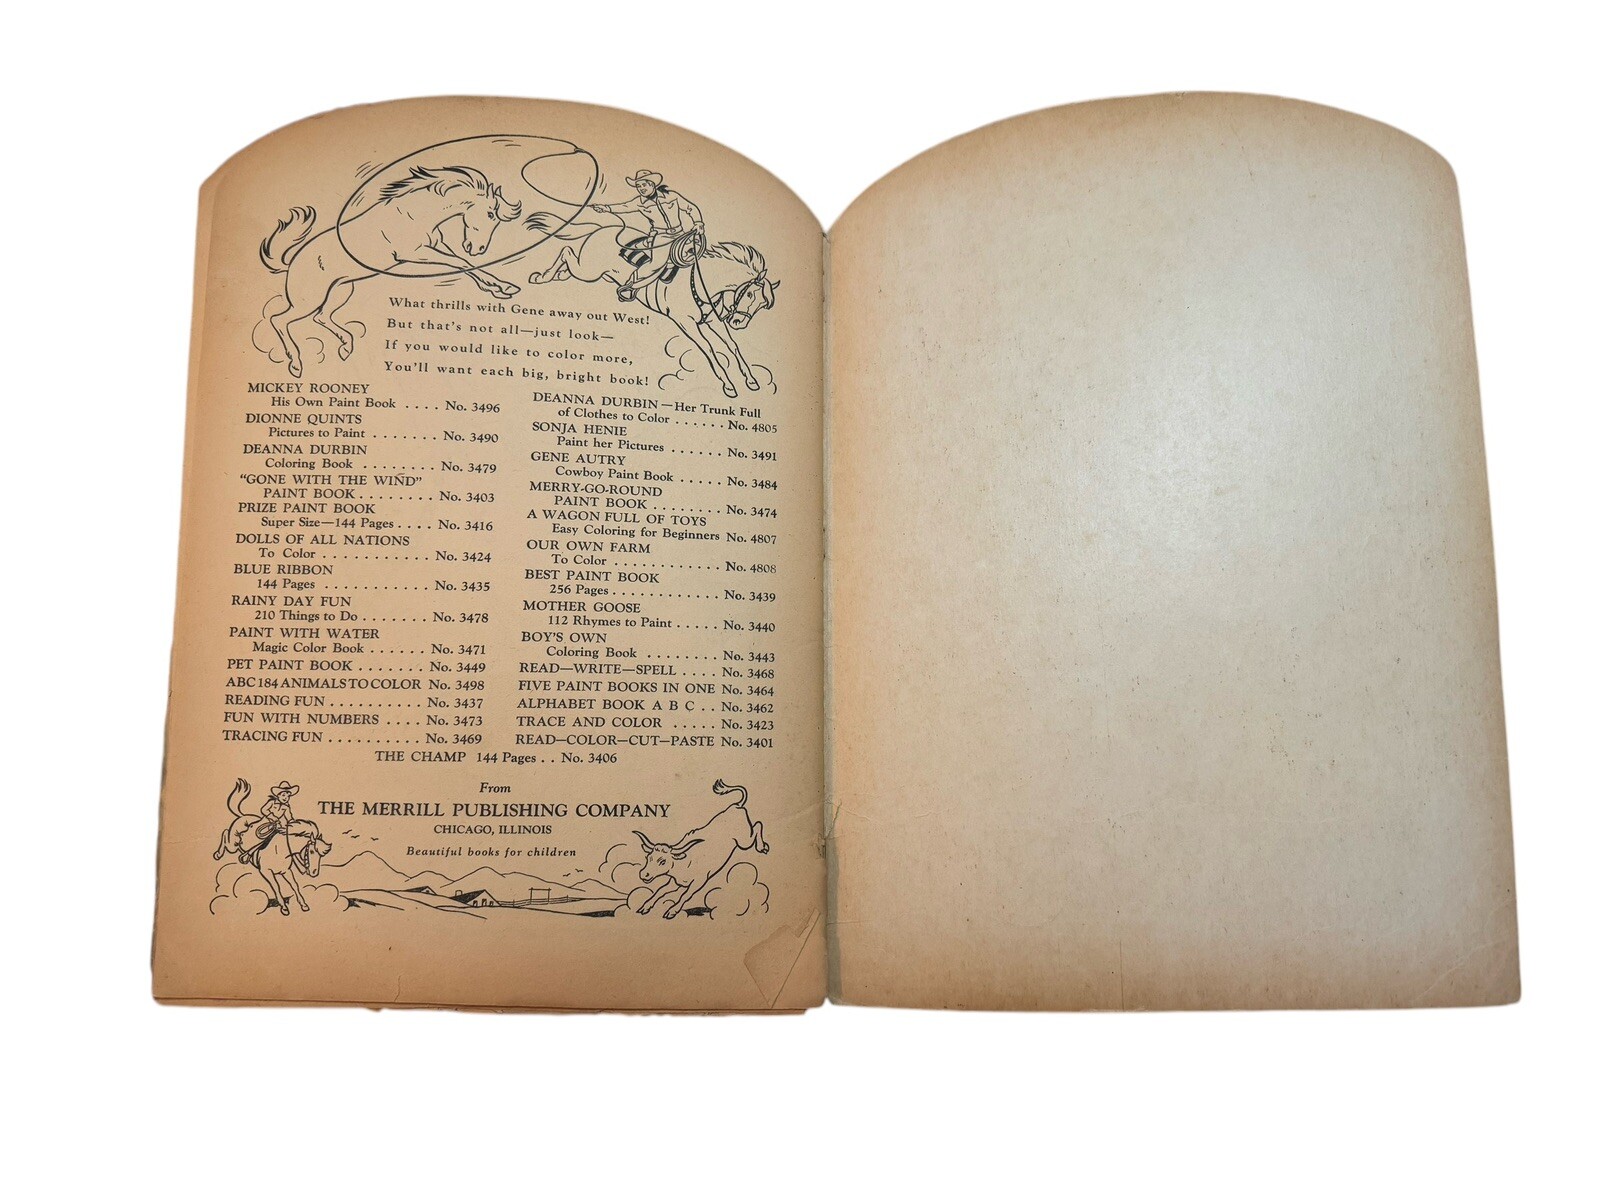 What thrills with Gene away out West!
But that's not all—just look—
If you would like to color more,
You'll want each big, bright book!
MICKEY ROONEY
His Own Paint Book .... No. 3496
DIONNE QUINTS
Pictures to Paint ....... No. 3490
DEANNA DURBIN
Coloring Book ........ No. 3479
"GONE WITH THE WIND"
PAINT BOOK........ No. 3403
PRIZE PAINT BOOK
Super Size—144 Pages.... No. 3416
DOLLS OF ALL NATIONS
To Color ........... No. 3424
BLUE RIBBON
144 Pages .......... No. 3435
RAINY DAY FUN
210 Things to Do ....... No. 3478
PAINT WITH WATER
Magic Color Book ...... No. 3471
PET PAINT BOOK ....... No. 3449
ABC 184 ANIMALS TO COLOR No. 3498
READING FUN .......... No. 3437
FUN WITH NUMBERS .... No. 3473
TRACING FUN .......... No. 3469
DEANNA DURBIN—Her Trunk Full
of Clothes to Color ...... No. 4805
SONJA HENIE
Paint her Pictures ...... No. 3491
GENE AUTRY
Cowboy Paint Book ..... No. 3484
MERRY-GO-ROUND
PAINT BOOK ........ No. 3474
A WAGON FULL OF TOYS
Easy Coloring for Beginners No. 4807
OUR OWN FARM
To Color ............ No. 4808
BEST PAINT BOOK
256 Pages ............ No. 3439
MOTHER GOOSE
112 Rhymes to Paint ..... No. 3440
BOY'S OWN
Coloring Book ........ No. 3443
READ—WRITE—SPELL .... No. 3468
FIVE PAINT BOOKS IN ONE No. 3464
ALPHABET BOOK A B C .. No. 3462
TRACE AND COLOR ..... No. 3423
READ—COLOR—CUT—PASTE No. 3401
THE CHAMP 144 Pages .. No. 3406
From
THE MERRILL PUBLISHING COMPANY
CHICAGO, ILLINOIS
Beautiful books for children